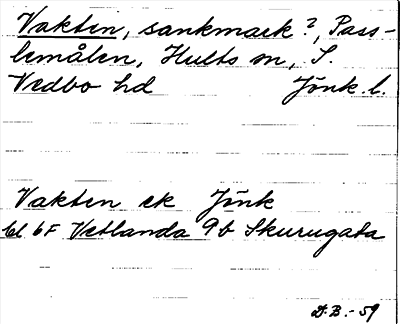 Vakten, sankmark?, Pass-
lemålen, Hults sn, S.
Vedbo hd Jönk. l.
Vakten ek Jönk
bl 6F Vetlanda 9b Skurugata
D.B.-59